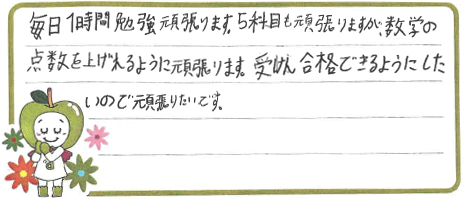 毎日1時間勉強頑張ります。5科目も頑張りますが、数学の
点数を上げれるように頑張ります。受けん合格できるようにした
いので頑張りたいです。